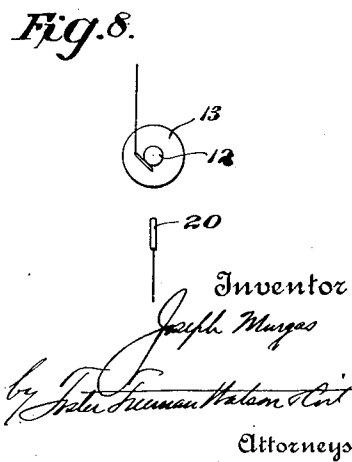 Fig. 8.
13
12
20
Inventor
Joseph Murgas
by Foster Freeman Watson & Coit
Attorneys